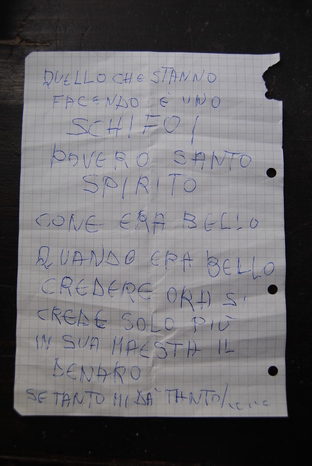 QUELLO CHE STANNO
FACENDO È UNO
SCHIFO!
POVERO SANTO
SPIRITO
COME ERA BELLO
QUANDO ERA BELLO
CREDERE ORA SI
CREDE SOLO PIÙ
IN SUA MAESTA IL
DENARO
SE TANTO MI DÀ TANTO/.....